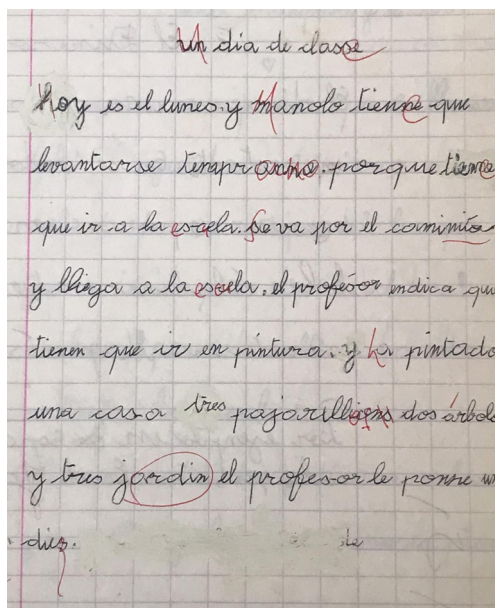 Un dia de classe
Hoy es el lunes. y Manolo tienne que
levantarse temprano. porque tienne
que ir a la escela. Se va por el caminito
y lliega a la escuela. el profésor indica que
tienen que ir en pintura. y ha pintado
una casa tres pajarillios dos árbole
y tres jardin el profesor le ponne un
diez.
de